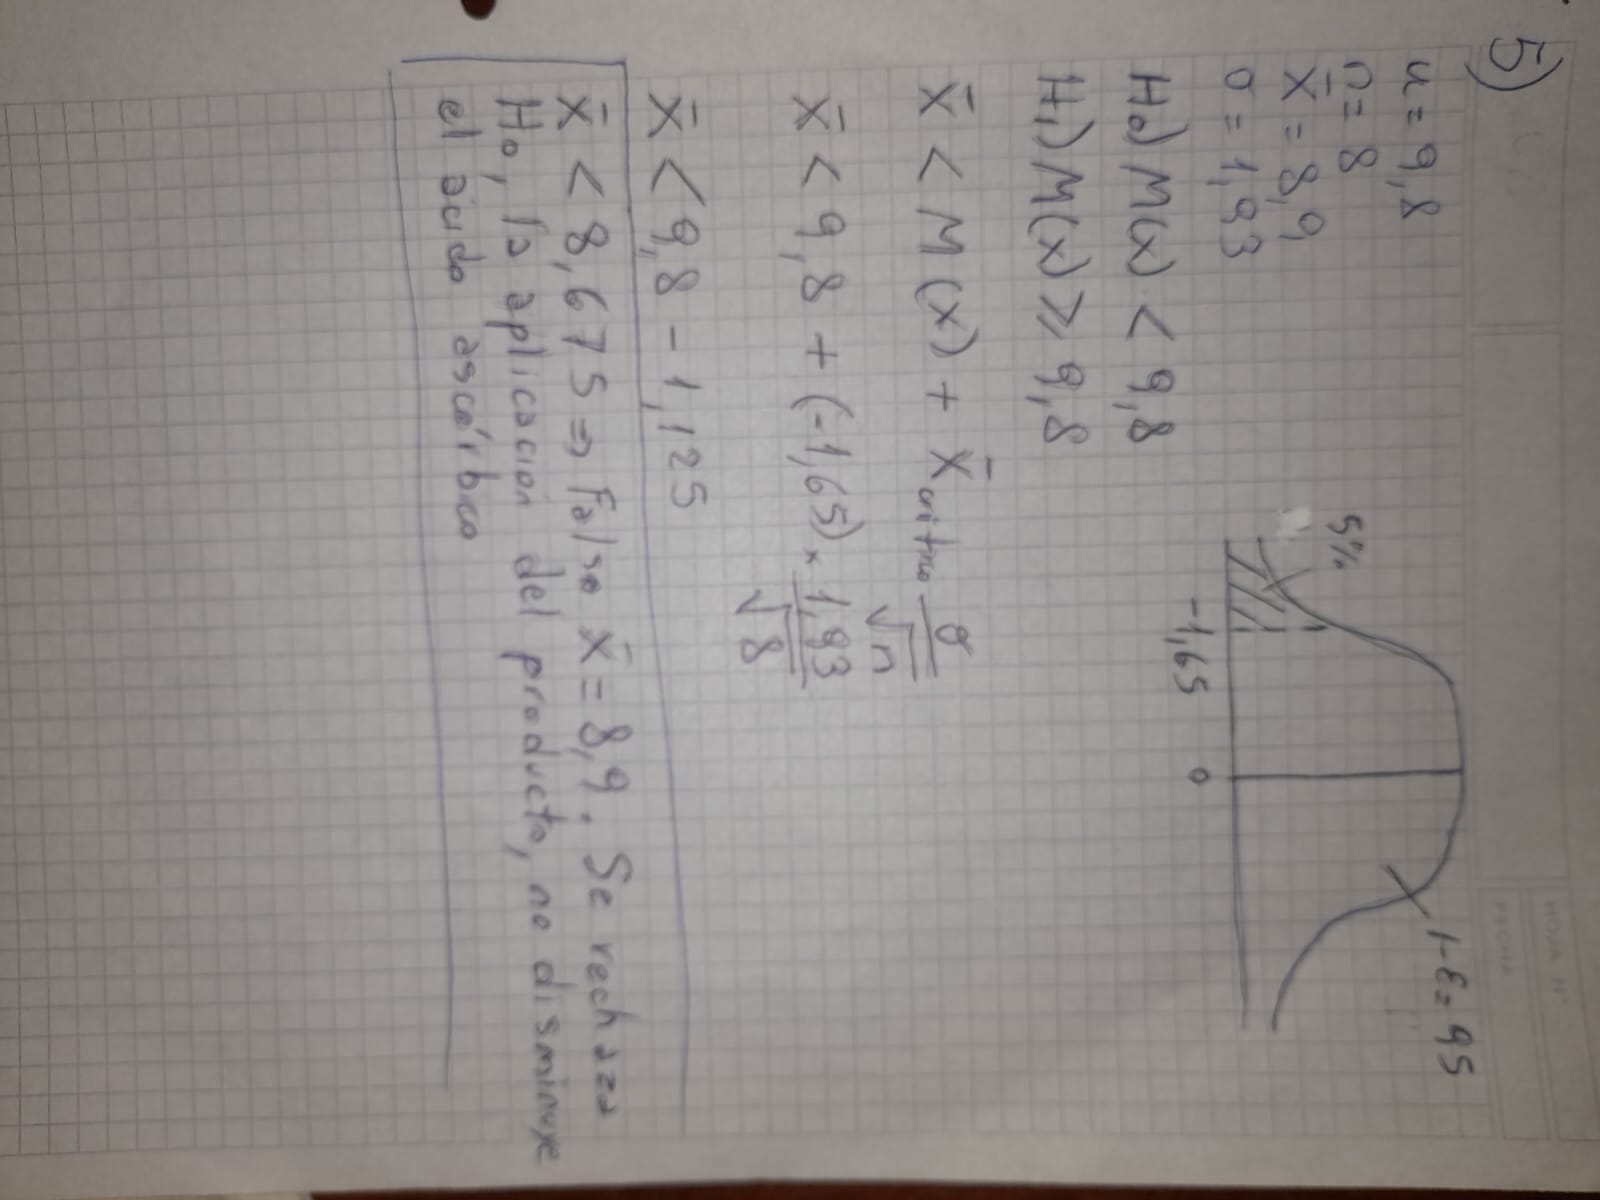 HOJA N°
FECHA
5)
u = 9,8
n = 8
x̄ = 8,9
σ = 1,93
1-ε = 95
5%
-1,65
0
H₀) M(x) < 9,8
H₁) M(x) ≥ 9,8
x̄ < M(x) + x̄ critico σ/√n
x̄ < 9,8 + (-1,65) × 1,93/√8
x̄ < 9,8 - 1,125
x̄ < 8,675 ⇒ Falso x̄ = 8,9. Se rechaza
H₀, la aplicacion del producto, no disminuye
el acido ascórbico